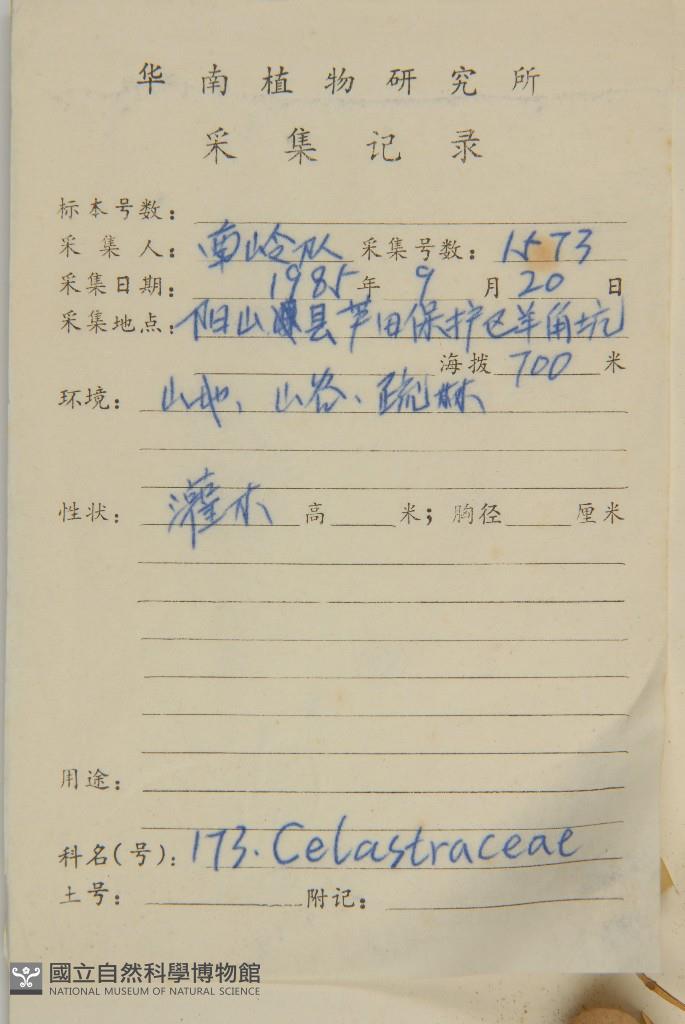 华南植物研究所
采集记录
标本号数：
采集人：南岭队 采集号数：1573
采集日期：1985年 9月 20日
采集地点：阳山县芦田保护区羊角坑
海拨 700 米
环境：山地、山谷、疏林
性状：灌木 高 米；胸径 厘米
用途：
科名(号)：173. Celastraceae
土号： 附记：
國立自然科學博物館
NATIONAL MUSEUM OF NATURAL SCIENCE